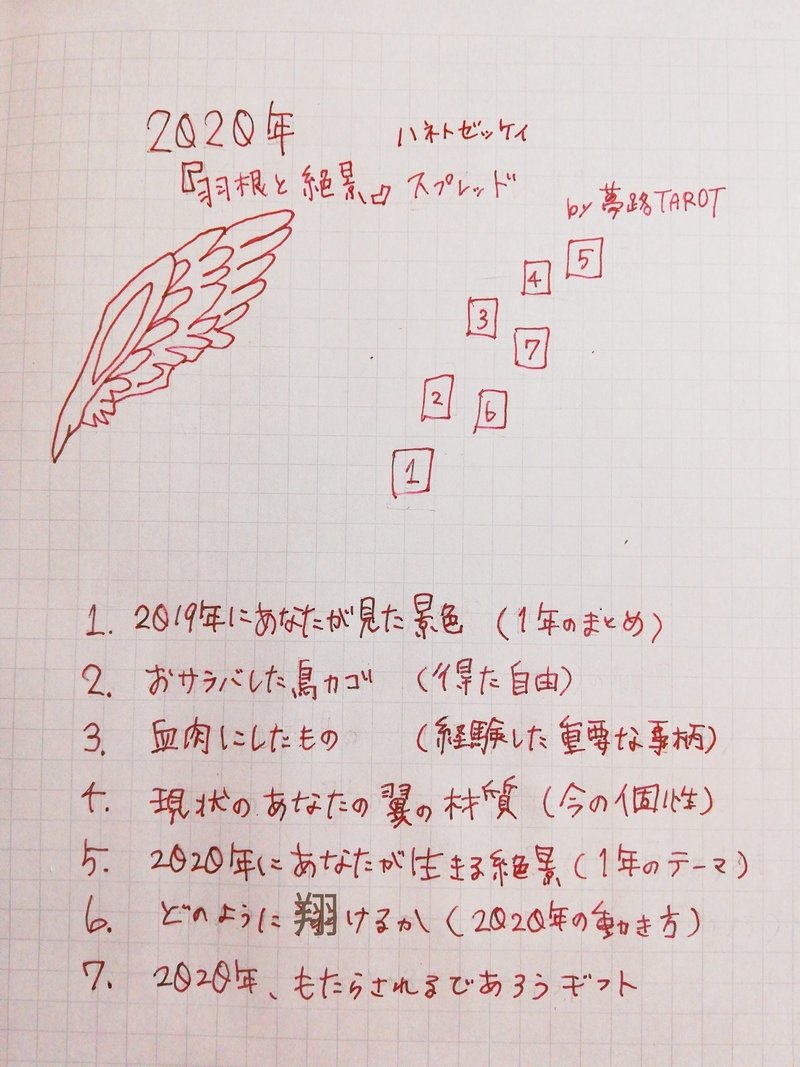 2020年 ハネトゼッケイ
『羽根と絶景』スプレッド
by 夢路TAROT
5
4
3
7
2
6
1
1. 2019年にあなたが見た景色 (1年のまとめ)
2. おサラバした鳥カゴ (得た自由)
3. 血肉にしたもの (経験した重要な事柄)
4. 現状のあなたの翼の材質 (今の個性)
5. 2020年にあなたが生きる絶景 (1年のテーマ)
6. どのように翔けるか (2020年の動き方)
7. 2020年、もたらされるであろうギフト